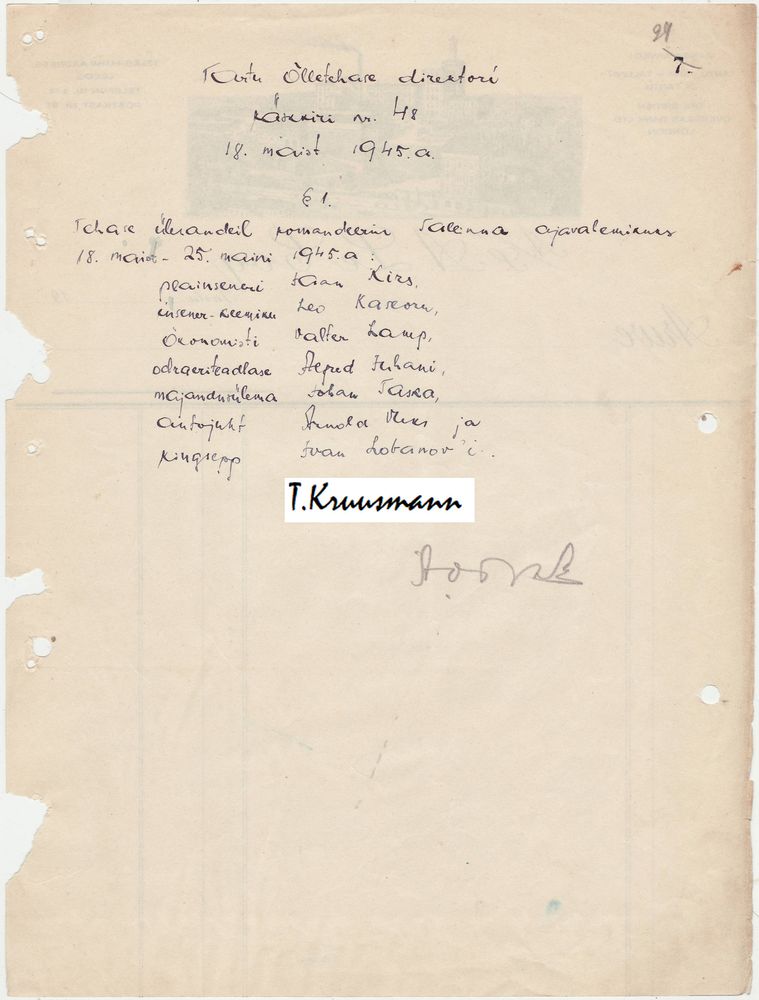 24
7.
Tartu Õlletehase direktori
Käskkiri nr. 48
18. maist 1945.a.
§ 1.
Tehase ülesandeil komandeerin Tallinna ajavahemikus
18. maist - 25. maini 1945.a:
peainseneri Jaan Kirs,
insener-keemiku Leo Kaseorn,
Ökonomisti Valter Lamp,
odraeriteadlase Alfred Juhani,
majandusülema Johan Taska,
autojuht Arnold Uus ja
kingsepp Ivan Lobanov'i.
T.Kruusmann